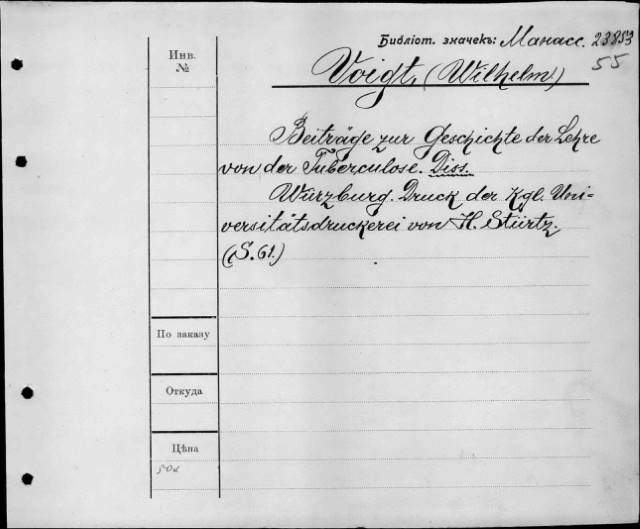 Библіот. значекъ: Манасс. 23853
55
Инв.
№
Voigt, (Wilhelm)
Beiträge zur Geschichte der Lehre
von der Tuberculose. Diss.
Würzburg. Druck der Kgl. Uni-
versitätsdruckerei von H. Stürtz.
(S. 61.)
По заказу
Откуда
Цѣна